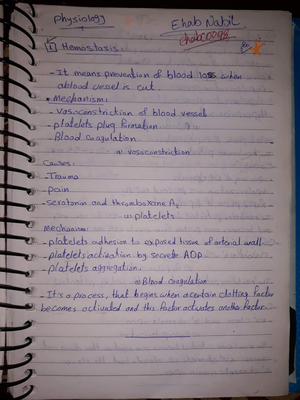 Physiology
Ehab Nabil
ehab0098
1 Hemostasis
- It means prevention of blood loss when
a blood vessel is cut.
• Mechanism:
- Vasoconstriction of blood vessel
- platelets plug formation
- Blood coagulation
① vasoconstriction
Causes:
- Trauma
- pain
- serotonin and thromboxane A₂
② platelets
Mechanism:
- platelets adhesion to exposed tissue of arterial wall
- platelets activation by secrete ADP
- platelets aggregation.
③ Blood coagulation
- It's a process, that begins when a certain clotting factor
becomes activated and this factor activates another factor